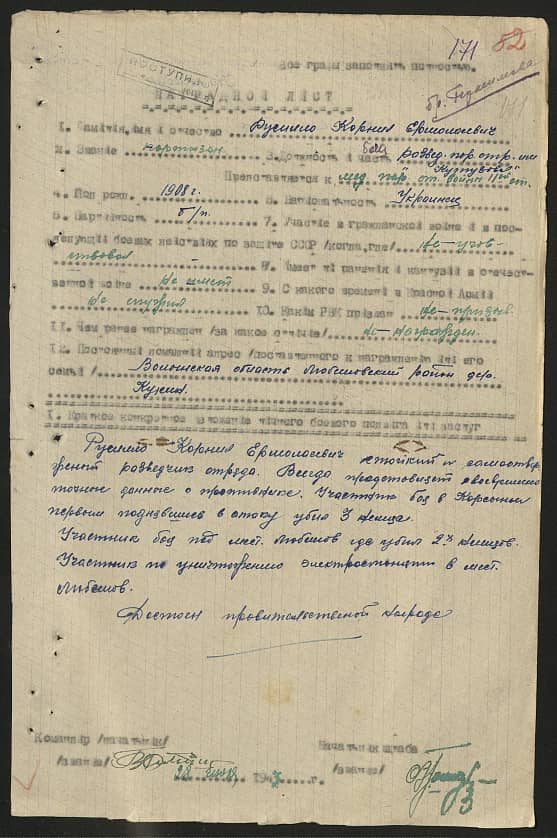 171 82
Все графы заполнять полностью.
ПОСТУПИЛО
НАГРАДНОЙ ЛИСТ
1. Фамилия, имя и отчество Русмило Корнил Ермолоевич
2. Звание портизан 3. Должность и часть боец развед. пар. отр. им
Кутузова
Представляется к мед. пар. от. войны II ой ст.
4. Год рожд. 1908 г. 5. Национальность Украинец
6. Партийность б/п. 7. Участие в гражданской войне и пос-
ледующих боевых действиях по защите СССР /когда, где/ Не-учов-
ствовал 8. Имеет ли ранения и контузии в отечест-
венной войне Не имеет 9. С какого времени в Красной Армии
Не служил 10. Каким РВК призван Не-призыв.
11. Чем ранее награжден /за какое отличие/ Не-награжден.
12. Постоянный домашний адрес /поставленного к награждению или его
семьи/ Волынская область Любешовский район дер.
1. Краткое конкретное изложение личного боевого подвига или заслуг
Русмило Корнил Ермолоевич стойкий и самоотвер
женый розведчик отряда. Всегда предстовляет своевременно
точные данные о противнике. Участник боя в
первым поднявшись в атоку убил 3 немца.
Участник боя под мест. Любешов где убил 2х немцов.
Участник по уничтожению электростанции в мест.
Любешов.
Достоин правительственой награде
Командир /начальник/ Начальник штаба
/звание/ /звание/
28 194 г.